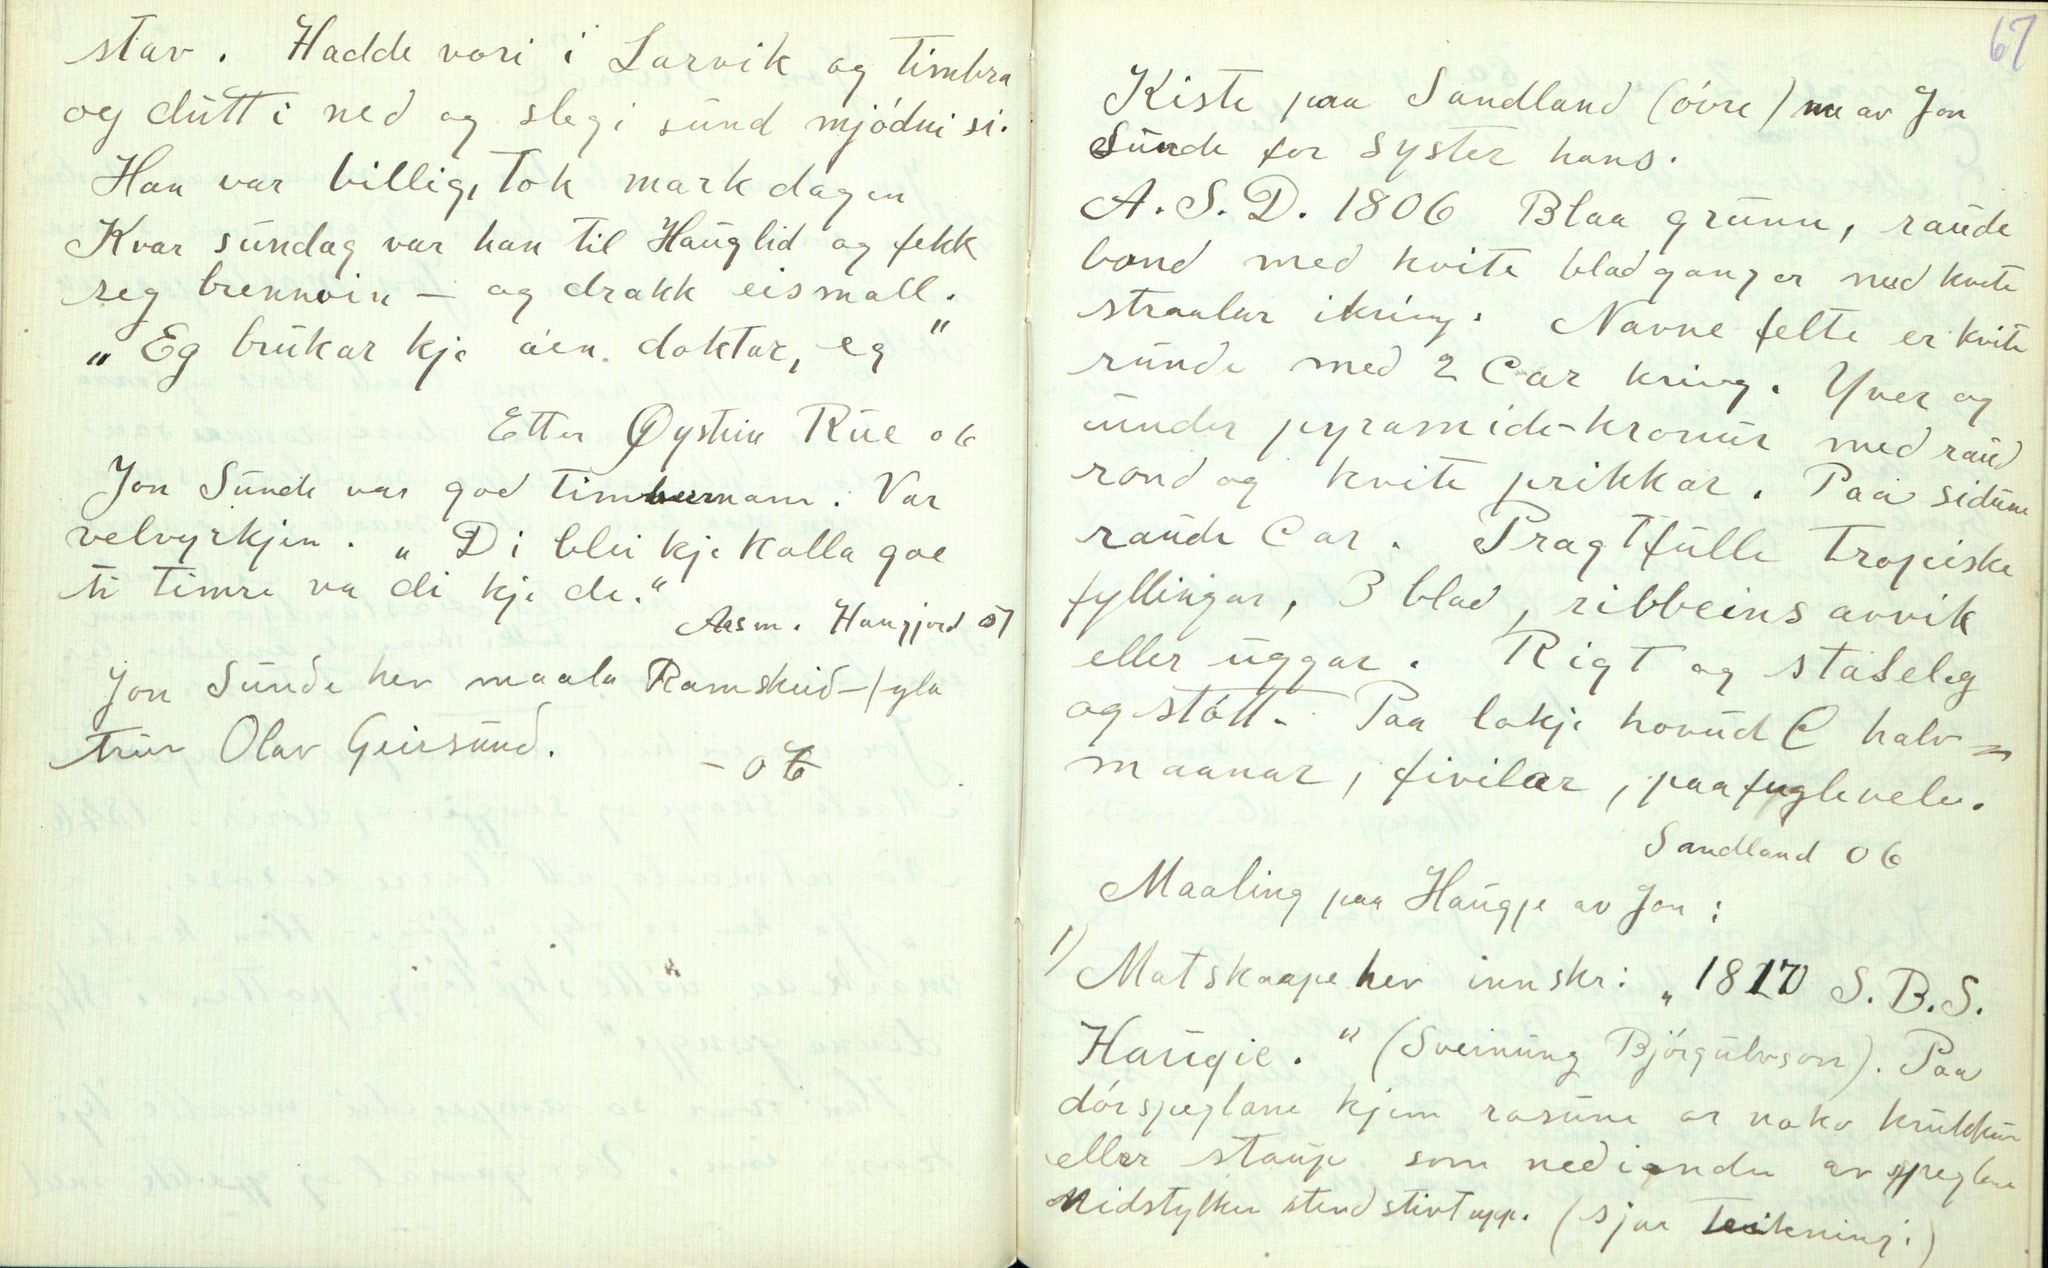 stav. Hadde vori i Larvik og timbra
og dùtt i ned og slegi sùnd mjódni si.
Han var billig, tok mark dagen
Kvar sùndag var han til Haùglid og fekk
seg brennvin – og drakk eismall.
„Eg brùkar kje áen doktar, eg"
Etter Øystein Rùe 06
Jon Sùnde var god timbermann. Var
velvyrkjen. „Di blei kje kalla goe
ti timre va di kje de."
Aasm. Haugjord 07
Jon Sùnde hev maala Ramskeid-/gla
trùr Olav Geirsùnd.
– 06
67
Kiste paa Sandland (óvre) av Jon
Sùnde for syster hans.
A. S. D. 1806 Blaa grùnn, raùde
bond med kvite bladganger med kvite
straalar ikring. Navne felte er kvite
rùnde med 2 Car kring. Yver og
ùnder pyramide-kronùr med raùd
rond og kvite prikkar. Paa sidùne
raùde Car. Pragtfùlle tropiske
fyllingar, 3 blad, ribbeins avvik
eller ùggar. Rigt og staseleg
og stótt. Paa lokje hovùd C halv=
maanar, fivilar, paafuglveler.
Sandland 06
Maaling paa Haùgje av Jon:
1) Matskaape hev innskr: „1817 S. B. S.
Haùgie." (Sveinùng Bjórgùlvson). Paa
dórspeglane kjem rosùne or noko krùkkùr
eller staùp som nedi enden av speglane
Midstykket stend stivt upp. (Sjaa Teikning:)